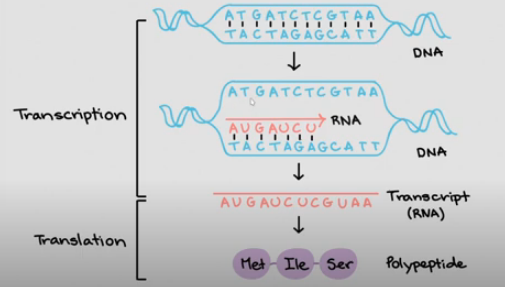 ATGATCTCGTAA
TACTAGAGCATT
DNA
Transcription
ATGATCTCGTAA
RNA
AUGAUCU
TACTAGAGCATT
DNA
AUGAUCUCGUAA
Transcript
(RNA)
Translation
Met Ile Ser
Polypeptide